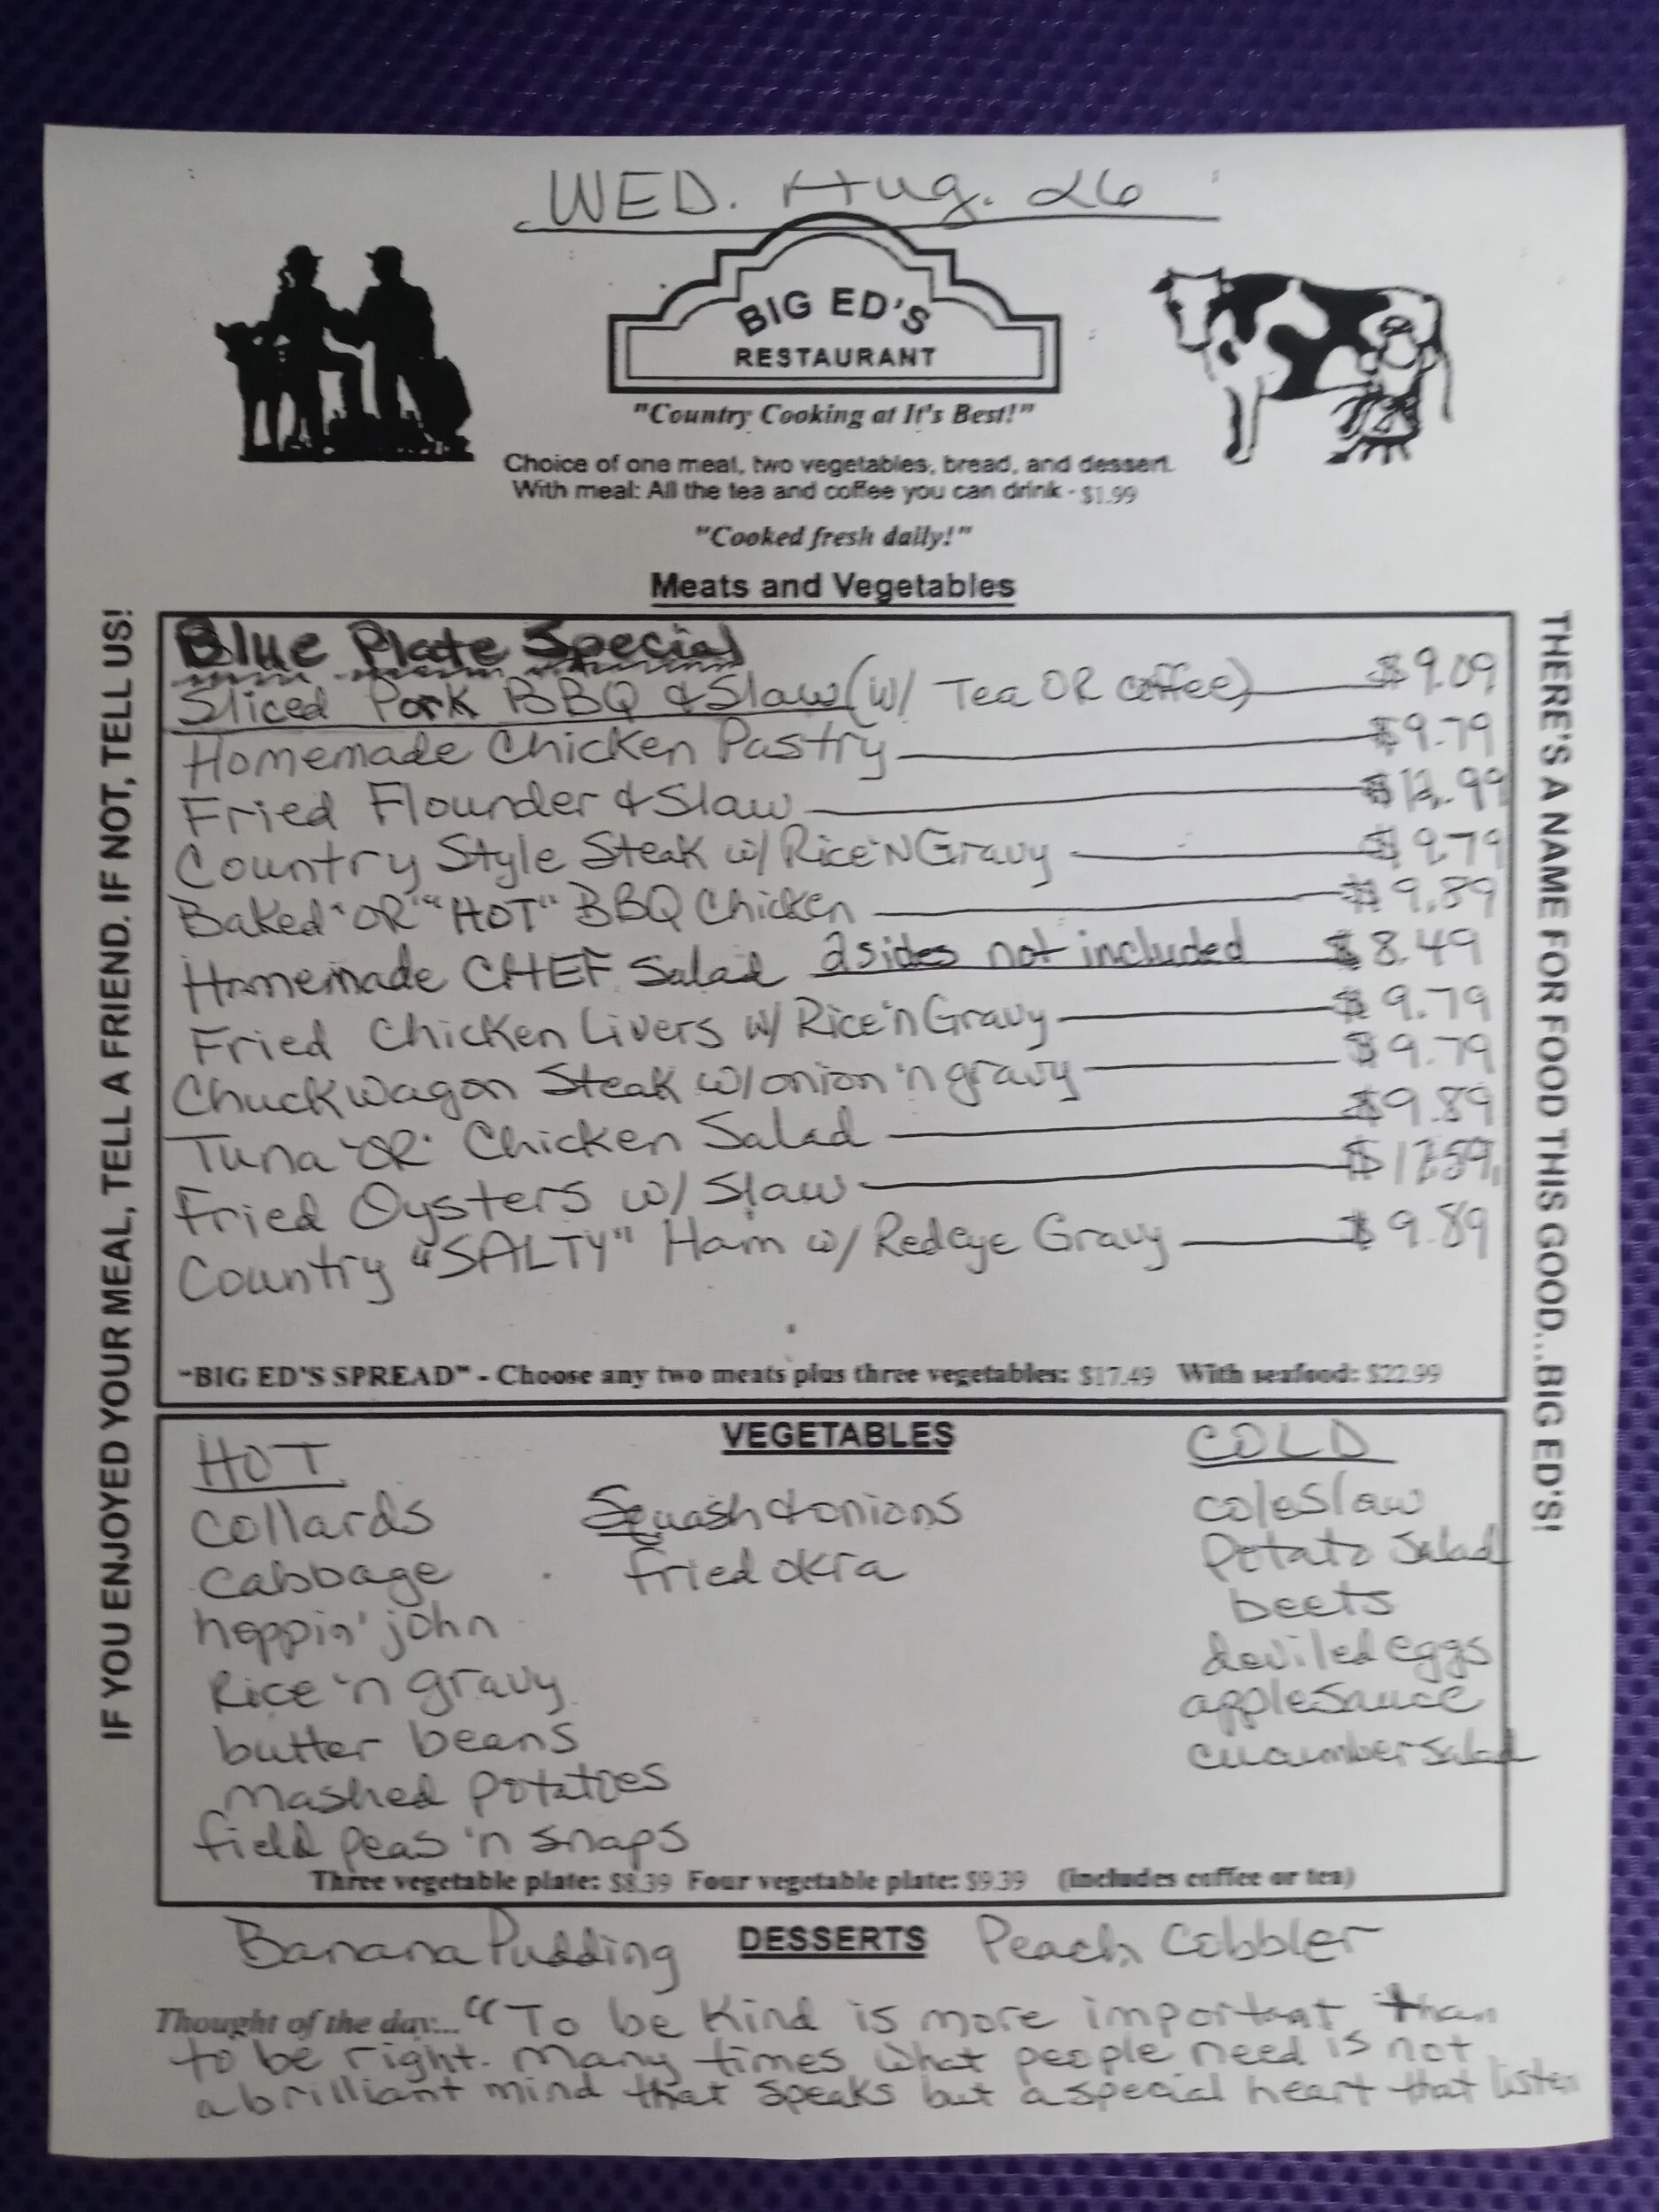 WED. Aug. 26
BIG ED'S
RESTAURANT
"Country Cooking at It's Best!"
Choice of one meat, two vegetables, bread, and dessert.
With meal: All the tea and coffee you can drink - $1.99
"Cooked fresh daily!"
Meats and Vegetables
IF YOU ENJOYED YOUR MEAL, TELL A FRIEND. IF NOT, TELL US!
THERE'S A NAME FOR FOOD THIS GOOD...BIG ED'S!
Blue Plate Special
Sliced Pork BBQ & Slaw (w/ Tea OR coffee) $9.09
Homemade Chicken Pastry $9.79
Fried Flounder & Slaw
Country Style Steak w/ Rice 'N Gravy $9.79
Baked "OR" "HOT" BBQ Chicken $9.89
Homemade CHEF Salad 2 sides not included $8.49
Fried Chicken Livers w/ Rice 'n Gravy $9.79
Chuckwagon Steak w/ onion 'n gravy $9.79
Tuna "OR" Chicken Salad $9.89
Fried Oysters w/ Slaw
Country "SALTY" Ham w/ Redeye Gravy $9.89
"BIG ED'S SPREAD" - Choose any two meats plus three vegetables: $17.49 With seafood: $22.99
VEGETABLES
HOT
collards
cabbage
hoppin' john
Rice 'n gravy
butter beans
mashed potatoes
field peas 'n snaps
Squash & onions
fried okra
COLD
coleslaw
Potato Salad
beets
deviled eggs
applesauce
cucumber salad
Three vegetable plate: $8.39 Four vegetable plate: $9.39 (includes coffee or tea)
Banana Pudding DESSERTS Peach Cobbler
Thought of the day:... "To be kind is more important than
to be right. Many times what people need is not
a brilliant mind that speaks but a special heart that listen